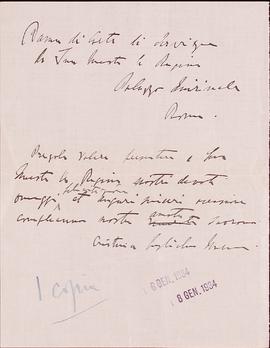 Dama di Corte di servizio
di Sua Maestà la Regina
Palazzo Quirinale
Roma.
Pregola voler presentare a Sua
Maestà la Regina nostri devoti
omaggi et auguri sinceri occasione
compleanno nostra
Cristina
6 GEN. 1934
8 GEN. 1934
1 copia